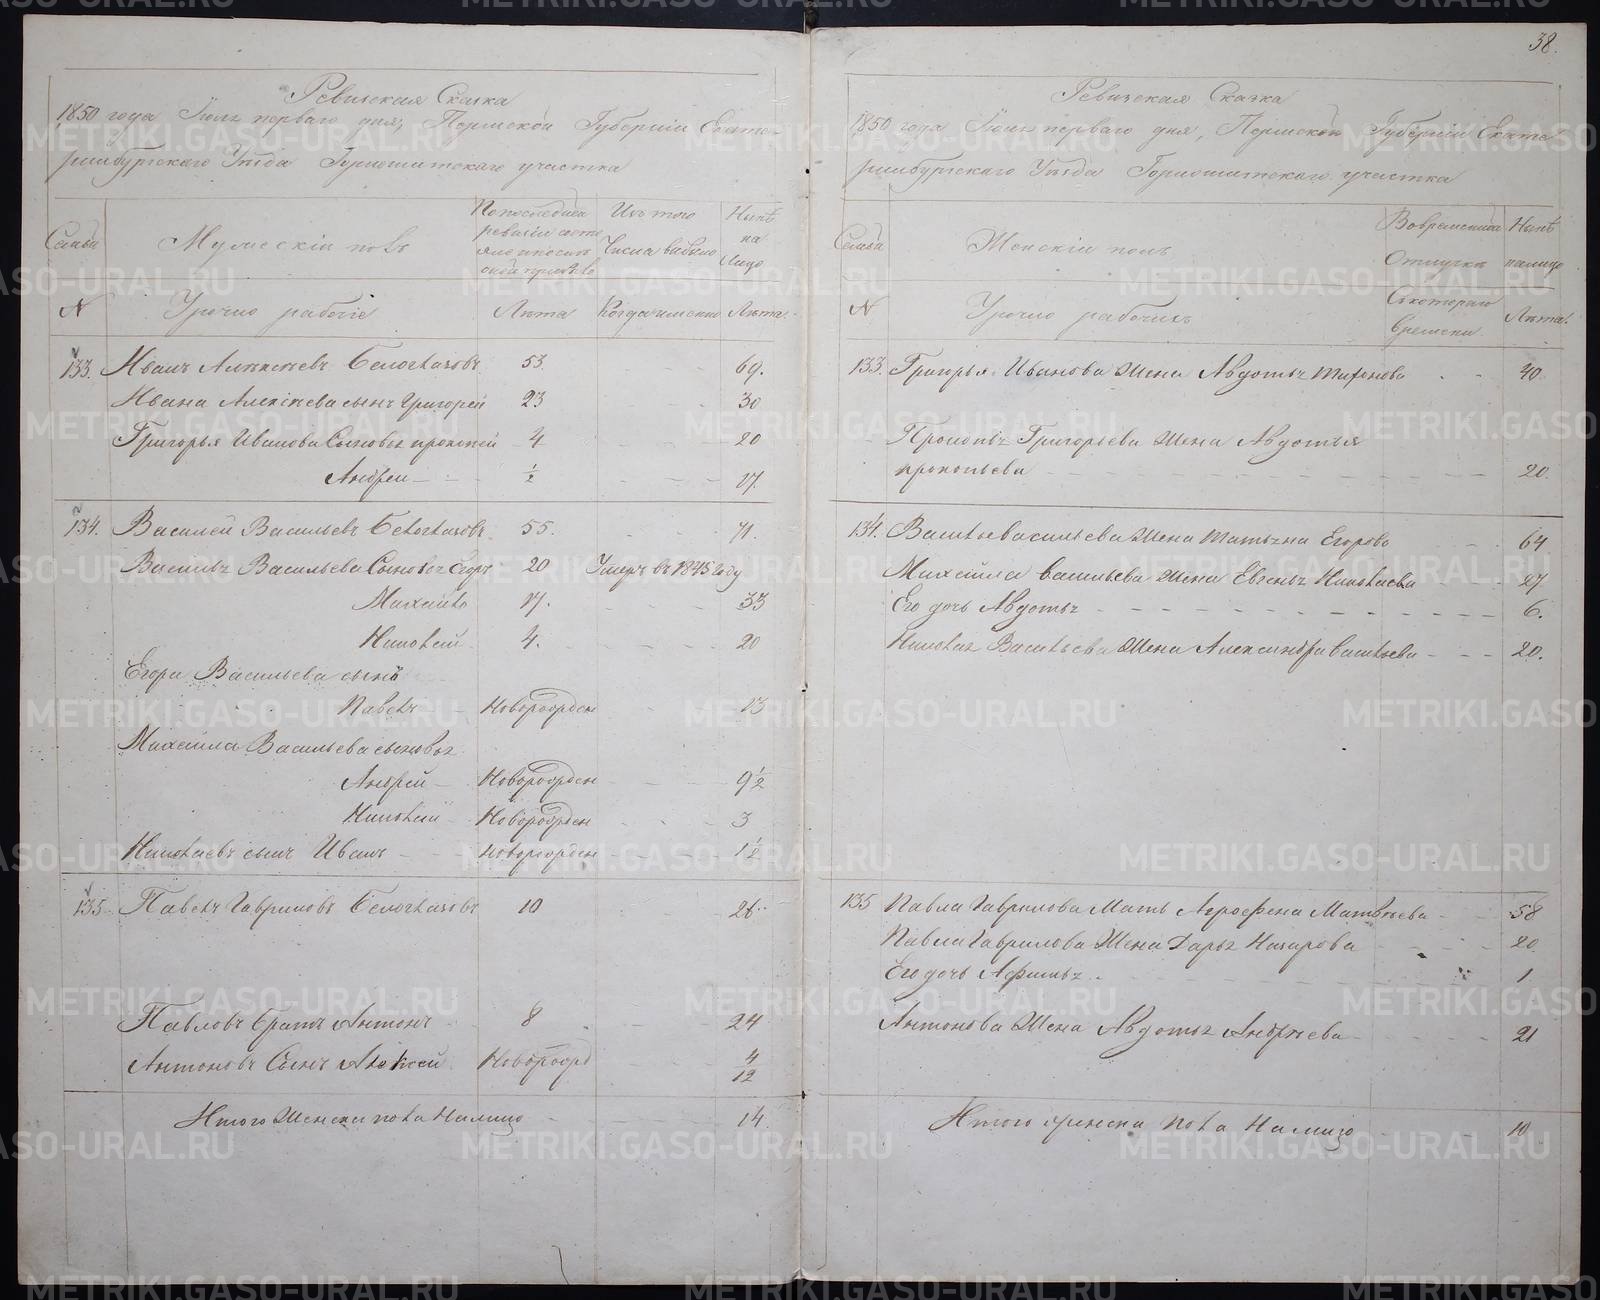 38.
Ревизская Сказка
1850 года Июля перваго дня, Пермской Губернии Екате-
ринбургскаго Уѣзда Горнощитскаго участка
Семьи
Мужескій полъ
По последней ревизіи состояло
Изъ того Числа выбыло
Нынѣ на Лицо
N
Урочно рабочіе
Лѣта
Когда именно
Лѣта.
133. Иванъ Алексѣевъ Белоглазовъ 53. 69.
Ивана Алексѣева сынъ Григорей 23 30
Григорья Иванова Сыновья прокопей 4 20
Андреи 1/2 17.
134. Василей Васильевъ Белоглазовъ 55. 71.
Василья Васильева Сыновья Егоръ 20 Умеръ въ 1845 году
Михайло 17. 33
Николай 4. 20
Егора Васильева сынъ
Павелъ Новорожден 13
Михайла Васильева сыновья
Андрей Новорожден 9 1/2
Николай Новорожден 3
Николаевъ сынъ Иванъ Новорожден 1 1/2
135. Павелъ Гавриловъ Белоглазовъ 10 26
Павловъ Братъ Антонъ 8 24
Антоновъ Сынъ Алексей Новорожд 4/12
Итого Женска пола Налицо 14.
Ревизская Сказка
1850 года Июля перваго дня, Пермской Губернии Екате-
ринбургскаго Уѣзда Горнощитскаго участка
Семьи
Женскій полъ
Во временной Отлучкѣ
Нынѣ налицо
N
Урочно рабочихъ
Съ котораго времени
Лѣта.
133. Григорья Иванова Жена Авдотья Тихонова 40
Прокопья Григорьева Жена Авдотья
прокопьева 20.
134. Василья васильева Жена Татьяна Егорова 64
Михайла васильева Жена Евгенья Николаева 27
Его дочь Авдотья 6.
Николая Васильева Жена Александра васильева 20.
135 Павла Гаврилова Мать Агрофена Матвѣева 58
Павла Гаврилова Жена Дарья Назарова 20
Его дочь Афимья 1
Антонова Жена Авдотья Андрѣева 21
Итого женска пола Налицо 10
METRIKI.GASO-URAL.RU